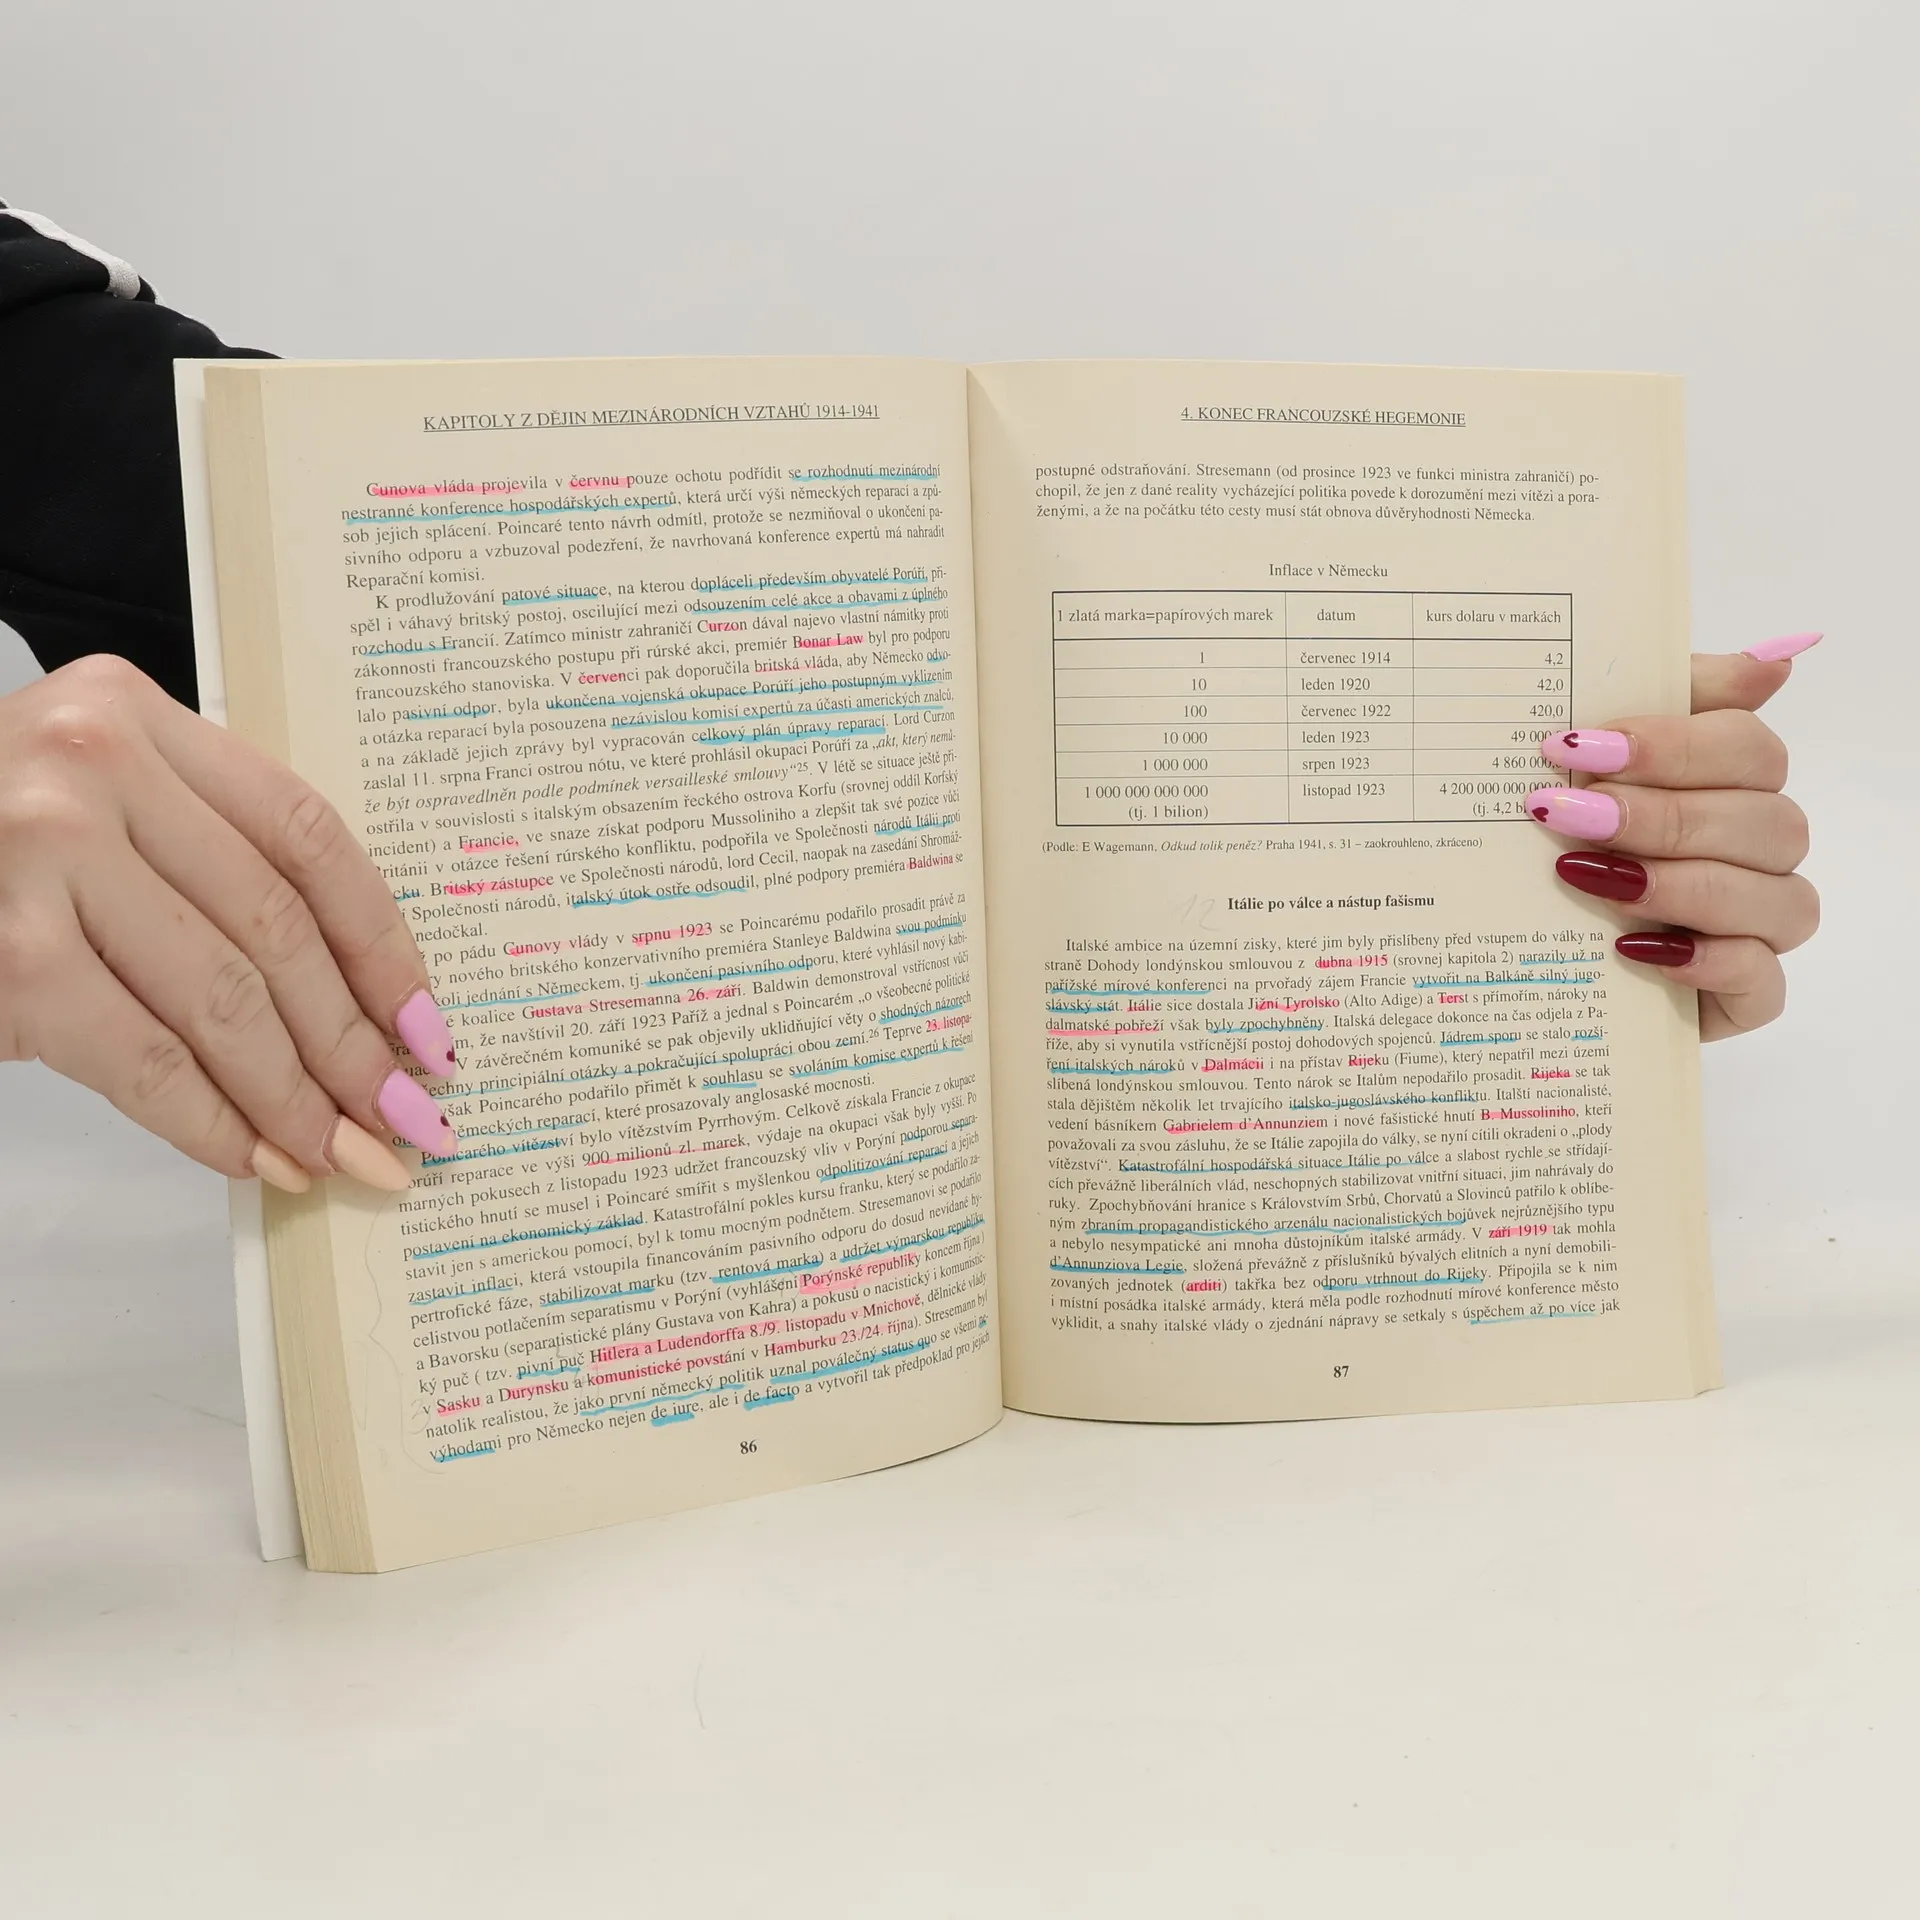 KAPITOLY Z DĚJIN MEZINÁRODNÍCH VZTAHŮ 1914-1941
Cunova vláda projevila v červnu pouze ochotu podřídit se rozhodnutí mezinárodní
nestranné konference hospodářských expertů, která určí výši německých reparací a způ-
sob jejich splácení. Poincaré tento návrh odmítl, protože se nezmiňoval o ukončení pa-
sivního odporu a vzbuzoval podezření, že navrhovaná konference expertů má nahradit
Reparační komisi.
K prodlužování patové situace, na kterou dopláceli především obyvatelé Porúří, při-
spěl i váhavý britský postoj, oscilující mezi odsouzením celé akce a obavami z úplného
rozchodu s Francií. Zatímco ministr zahraničí Curzon dával najevo vlastní námitky proti
zákonnosti francouzského postupu při rúrské akci, premiér Bonar Law byl pro podporu
francouzského stanoviska. V červenci pak doporučila britská vláda, aby Německo odvo-
lalo pasivní odpor, byla ukončena vojenská okupace Porúří jeho postupným vyklizením
a otázka reparací byla posouzena nezávislou komisí expertů za účasti amerických znalců,
a na základě jejich zprávy byl vypracován celkový plán úpravy reparací. Lord Curzon
zaslal 11. srpna Francii ostrou nótu, ve které prohlásil okupaci Porúří za „akt, který nemů-
že být ospravedlněn podle podmínek versailleské smlouvy“25. V létě se situace ještě při-
ostřila v souvislosti s italským obsazením řeckého ostrova Korfu (srovnej oddíl Korfský
incident) a Francie, ve snaze získat podporu Mussoliniho a zlepšit tak své pozice vůči
Británii v otázce řešení rúrského konfliktu, podpořila ve Společnosti národů Itálii proti
cku. Britský zástupce ve Společnosti národů, lord Cecil, naopak na zasedání Shromáž-
í Společnosti národů, italský útok ostře odsoudil, plné podpory premiéra Baldwina se
nedočkal.
ž po pádu Cunovy vlády v srpnu 1923 se Poincarému podařilo prosadit právě za
ry nového britského konzervativního premiéra Stanleye Baldwina svou podmínku
koli jednání s Německem, tj. ukončení pasivního odporu, které vyhlásil nový kabi-
é koalice Gustava Stresemanna 26. září. Baldwin demonstroval vstřícnost vůči
ím, že navštívil 20. září 1923 Paříž a jednal s Poincarém „o všeobecné politické
V závěrečném komuniké se pak objevily uklidňující věty o shodných názorech
echny principiální otázky a pokračující spolupráci obou zemí.26 Teprve 23. listopa-
však Poincarého podařilo přimět k souhlasu se svoláním komise expertů k řešení
německých reparací, které prosazovaly anglosaské mocnosti.
Poincarého vítězství bylo vítězstvím Pyrrhovým. Celkově získala Francie z okupace
orúří reparace ve výši 900 milionů zl. marek, výdaje na okupaci však byly vyšší. Po
marných pokusech z listopadu 1923 udržet francouzský vliv v Porýní podporou separa-
tistického hnutí se musel i Poincaré smířit s myšlenkou odpolitizování reparací a jejich
postavení na ekonomický základ. Katastrofální pokles kursu franku, který se podařilo za-
stavit jen s americkou pomocí, byl k tomu mocným podnětem. Stresemanovi se podařilo
zastavit inflaci, která vstoupila financováním pasivního odporu do dosud nevídané hy-
pertrofické fáze, stabilizovat marku (tzv. rentová marka) a udržet výmarskou republiku
celistvou potlačením separatismu v Porýní (vyhlášení Porýnské republiky koncem října)
a Bavorsku (separatistické plány Gustava von Kahra) a pokusů o nacistický i komunistic-
ký puč ( tzv. pivní puč Hitlera a Ludendorffa 8./9. listopadu v Mnichově, dělnické vlády
v Sasku a Durynsku a komunistické povstání v Hamburku 23./24. října). Stresemann byl
natolik realistou, že jako první německý politik uznal poválečný status quo se všemi ne-
výhodami pro Německo nejen de iure, ale i de facto a vytvořil tak předpoklad pro jejich
86
4. KONEC FRANCOUZSKÉ HEGEMONIE
postupné odstraňování. Stresemann (od prosince 1923 ve funkci ministra zahraničí) po-
chopil, že jen z dané reality vycházející politika povede k dorozumění mezi vítězi a pora-
ženými, a že na počátku této cesty musí stát obnova důvěryhodnosti Německa.
Inflace v Německu
1 zlatá marka=papírových marek datum kurs dolaru v markách
1 červenec 1914 4,2
10 leden 1920 42,0
100 červenec 1922 420,0
10 000 leden 1923 49 000
1 000 000 srpen 1923 4 860 000
1 000 000 000 000 listopad 1923 4 200 000 000 000,0
(tj. 1 bilion) (tj. 4,2 bi
(Podle: E Wagemann, Odkud tolik peněz? Praha 1941, s. 31 – zaokrouhleno, zkráceno)
12
Itálie po válce a nástup fašismu
Italské ambice na územní zisky, které jim byly přislíbeny před vstupem do války na
straně Dohody londýnskou smlouvou z dubna 1915 (srovnej kapitola 2) narazily už na
pařížské mírové konferenci na prvořadý zájem Francie vytvořit na Balkáně silný jugo-
slávský stát. Itálie sice dostala Jižní Tyrolsko (Alto Adige) a Terst s přímořím, nároky na
dalmatské pobřeží však byly zpochybněny. Italská delegace dokonce na čas odjela z Pa-
říže, aby si vynutila vstřícnější postoj dohodových spojenců. Jádrem sporu se stalo rozší-
ření italských nároků v Dalmácii i na přístav Rijeku (Fiume), který nepatřil mezi území
slíbená londýnskou smlouvou. Tento nárok se Italům nepodařilo prosadit. Rijeka se tak
stala dějištěm několik let trvajícího italsko-jugoslávského konfliktu. Italští nacionalisté,
vedení básníkem Gabrielem d'Annunziem i nové fašistické hnutí B. Mussoliniho, kteří
považovali za svou zásluhu, že se Itálie zapojila do války, se nyní cítili okradeni o „plody
vítězství“. Katastrofální hospodářská situace Itálie po válce a slabost rychle se střídají-
cích převážně liberálních vlád, neschopných stabilizovat vnitřní situaci, jim nahrávaly do
ruky. Zpochybňování hranice s Královstvím Srbů, Chorvatů a Slovinců patřilo k oblíbe-
ným zbraním propagandistického arzenálu nacionalistických bojůvek nejrůznějšího typu
a nebylo nesympatické ani mnoha důstojníkům italské armády. V září 1919 tak mohla
d'Annunziova Legie, složená převážně z příslušníků bývalých elitních a nyní demobili-
zovaných jednotek (arditi) takřka bez odporu vtrhnout do Rijeky. Připojila se k nim
i místní posádka italské armády, která měla podle rozhodnutí mírové konference město
vyklidit, a snahy italské vlády o zjednání nápravy se setkaly s úspěchem až po více jak
87